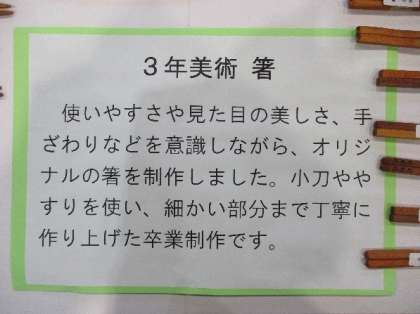 3年美術 箸
使いやすさや見た目の美しさ、手
ざわりなどを意識しながら、オリジ
ナルの箸を制作しました。小刀やや
すりを使い、細かい部分まで丁寧に
作り上げた卒業制作です。